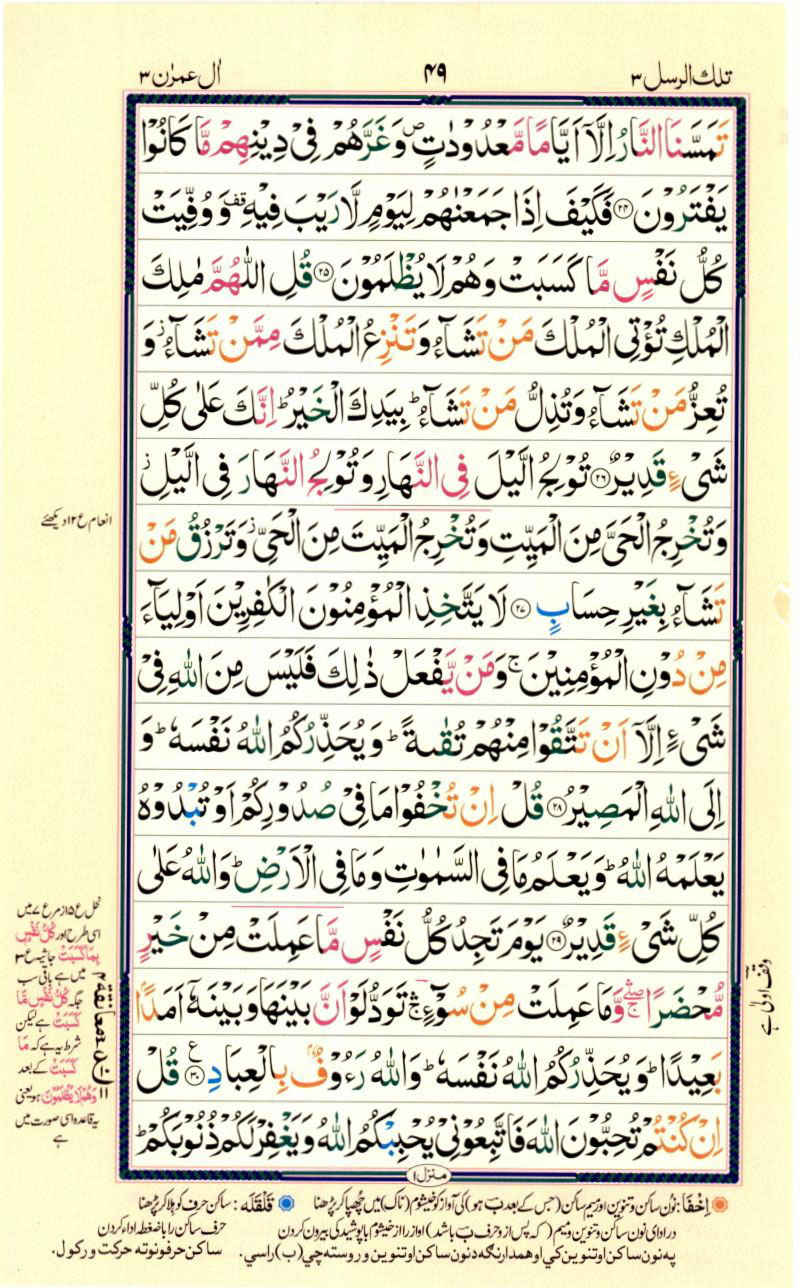 تلك الرسل ٣
٤٩
اٰل عمرٰن ٣
تَمَسَّنَا النَّارُ اِلَّاۤ اَيَّامًا مَّعْدُوْدٰتٍ ۪ وَغَرَّهُمْ فِيْ دِيْنِهِمْ مَّا كَانُوْا
يَفْتَرُوْنَ ﴿۲۴﴾ فَكَيْفَ اِذَا جَمَعْنٰهُمْ لِيَوْمٍ لَّا رَيْبَ فِيْهِ قف وَ وُفِّيَتْ
كُلُّ نَفْسٍ مَّا كَسَبَتْ وَهُمْ لَا يُظْلَمُوْنَ ﴿۲۵﴾ قُلِ اللّٰهُمَّ مٰلِكَ
الْمُلْكِ تُؤْتِي الْمُلْكَ مَنْ تَشَآءُ وَتَنْزِعُ الْمُلْكَ مِمَّنْ تَشَآءُ ز وَ
تُعِزُّ مَنْ تَشَآءُ وَتُذِلُّ مَنْ تَشَآءُ ؕ بِيَدِكَ الْخَيْرُ ؕ اِنَّكَ عَلٰى كُلِّ
شَيْءٍ قَدِيْرٌ ﴿۲۶﴾ تُوْلِجُ الَّيْلَ فِي النَّهَارِ وَتُوْلِجُ النَّهَارَ فِي الَّيْلِ ز
وَتُخْرِجُ الْحَيَّ مِنَ الْمَيِّتِ وَتُخْرِجُ الْمَيِّتَ مِنَ الْحَيِّ ز وَتَرْزُقُ مَنْ
تَشَآءُ بِغَيْرِ حِسَابٍ ﴿۲۷﴾ لَا يَتَّخِذِ الْمُؤْمِنُوْنَ الْكٰفِرِيْنَ اَوْلِيَآءَ
مِنْ دُوْنِ الْمُؤْمِنِيْنَ ۚ وَمَنْ يَّفْعَلْ ذٰلِكَ فَلَيْسَ مِنَ اللّٰهِ فِيْ
شَيْءٍ اِلَّاۤ اَنْ تَتَّقُوْا مِنْهُمْ تُقٰىةً ؕ وَيُحَذِّرُكُمُ اللّٰهُ نَفْسَهٗ ؕ وَ
اِلَى اللّٰهِ الْمَصِيْرُ ﴿۲۸﴾ قُلْ اِنْ تُخْفُوْا مَا فِيْ صُدُوْرِكُمْ اَوْ تُبْدُوْهُ
يَعْلَمْهُ اللّٰهُ ؕ وَيَعْلَمُ مَا فِي السَّمٰوٰتِ وَمَا فِي الْاَرْضِ ؕ وَاللّٰهُ عَلٰى
كُلِّ شَيْءٍ قَدِيْرٌ ﴿۲۹﴾ يَوْمَ تَجِدُ كُلُّ نَفْسٍ مَّا عَمِلَتْ مِنْ خَيْرٍ
مُّحْضَرًا ۛۖۚ وَّمَا عَمِلَتْ مِنْ سُوْٓءٍ ۛۚ تَوَدُّ لَوْ اَنَّ بَيْنَهَا وَبَيْنَهٗۤ اَمَدًۢا
بَعِيْدًا ؕ وَيُحَذِّرُكُمُ اللّٰهُ نَفْسَهٗ ؕ وَاللّٰهُ رَءُوْفٌۢ بِالْعِبَادِ ﴿۳۰﴾ ع قُلْ
اِنْ كُنْتُمْ تُحِبُّوْنَ اللّٰهَ فَاتَّبِعُوْنِيْ يُحْبِبْكُمُ اللّٰهُ وَيَغْفِرْ لَكُمْ ذُنُوْبَكُمْ ؕ
منزل ۱
انعام ع ۱۲ دیکھئے
نحل ع ۱۵ زمر ع ۷ میں
اسی طرح اور كُلُّ نَفْسٍ
بِمَا كَسَبَتْ جاثیہ ع ۳
میں ہے باقی سب
جگہ كُلُّ نَفْسٍ مَّا
كَسَبَتْ ہے لیکن
شرط یہ ہے کہ مَا
كَسَبَتْ کے بعد
وَهُمْ لَا يُظْلَمُوْنَ ہو یعنی
یہ قاعدہ اسی صورت میں
ہے
ع ۱۱
وقف اولیٰ ہے
اِخْفَا: نون ساکن و تنوین اور میم ساکن (جس کے بعد ب ہو) کی آواز کو خیشوم (ناک) میں چھپا کر پڑھنا
قَلْقَلَه: ساکن حرف کو ہلا کر پڑھنا
در ادای نون ساکن و تنوین و میم (که پس از و حرف ب باشد) آواز را از خیشوم با پوشیدگی بیرون کردن
حرف ساکن را با ضغطه ادا کردن
په نون ساکن او تنوین کی او همدارنگه د نون ساکن او تنوین وروسته چي (ب) راسي.
ساکن حرفونو ته حرکت ورکول.